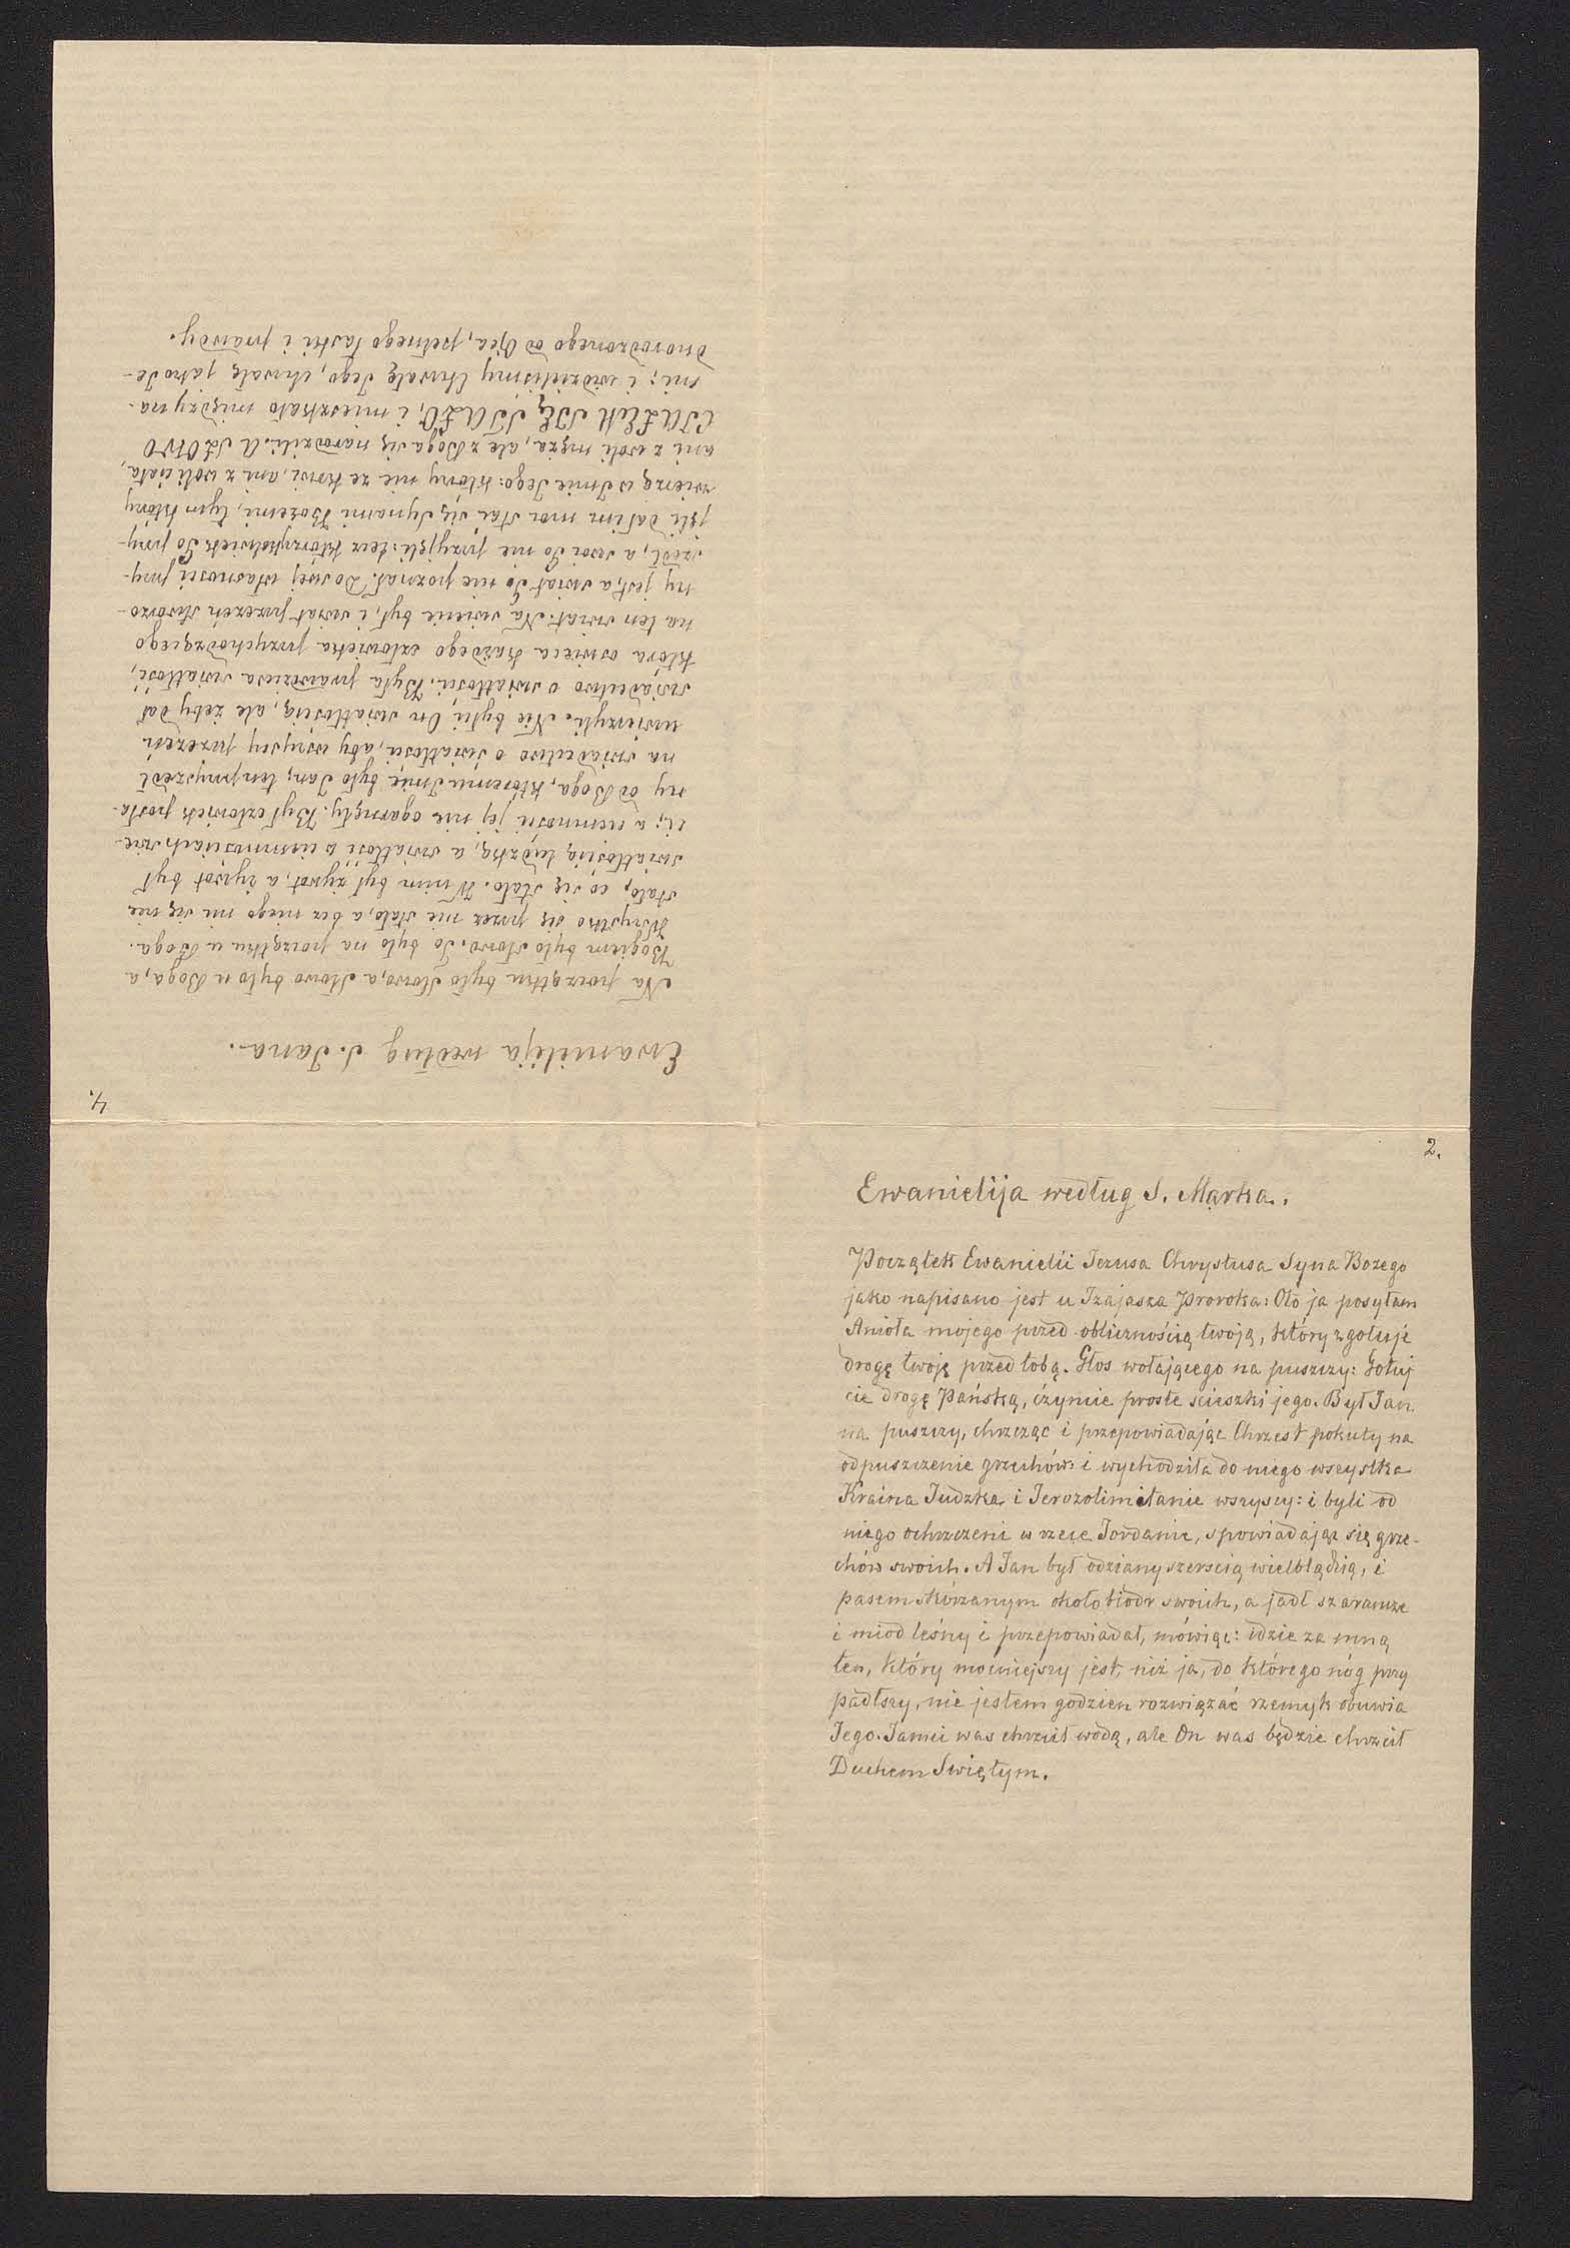 2.
Ewanielija według S. Marka.
Początek Ewanielii Jezusa Chrystusa Syna Bożego
jako napisano jest u Izajasza Proroka: Oto ja posyłam
Anioła mojego przed oblicznością twoją, który zgotuje
drogę twoję przed tobą. Głos wołającego na puszczy: Gotuj
cie drogę Pańską, czyńcie proste scieszki jego. Był Jan
na puszczy, chrzcząc i przepowiadając Chrzest pokuty na
odpuszczenie grzechów: i wychodziła do niego wszystka
Kraina Judzka i Jerozolimitanie wszyscy: i byli od
niego ochrzczeni w rzece Jordanie, spowiadając się grze-
chów swoich. A Jan był odziany szerścią wielblądzią, i
pasem skórzanym około biódr swoich, a jadł szarańcze
i miod leśny i przepowiadał, mówiąc: idzie za mną
ten, który mocniejszy jest, niż ja, do którego nóg przy
padłszy, nie jestem godzien rozwiązać rzemyk obuwia
Jego. Jamci was chrzcił wodą, ale On was będzie chrzcił
Duchem Swiętym.
4.
Ewanielija według S. Jana.
Na początku było Słowo, a Słowo było u Boga, a
Bogiem było Słowo. To było na początku u Boga.
Wszystko się przez nie stało, a bez niego nic się nie
stało, co się stało. W nim był żywot, a żywot był
światłością ludzką, a światłość w ciemnościach świe-
ci; a ciemności jej nie ogarnęły. Był człowiek posła-
ny od Boga, któremu Imię było Jan; ten przyszedł
na świadectwo o światłości, aby wszyscy przezeń
uwierzyli. Nie byłci On światłością, ale żeby dał
świadectwo o światłości. Była prawdziwa światłość,
która oświeca każdego człowieka przychodzącego
na ten świat. Na świecie był, i świat przezeń stworzo-
ny jest, a świat Go nie poznał. Do swej własności przy-
szedł, a swoi Go nie przyjęli: lecz którzykolwiek Go przy-
jęli dał im moc stac się Synami Bożemi, tym którzy
wierzą w Imię Jego: którzy nie ze krwi, ani z woli ciała,
ani z woli męża, ale z Boga się narodzili. A SŁOWO
CIAŁEM SIĘ STAŁO, i mieszkało między na-
mi; i widzieliśmy Chwałę Jego, chwałę jako Je-
dnorodzonego od Ojca, pełnego łaski i prawdy.